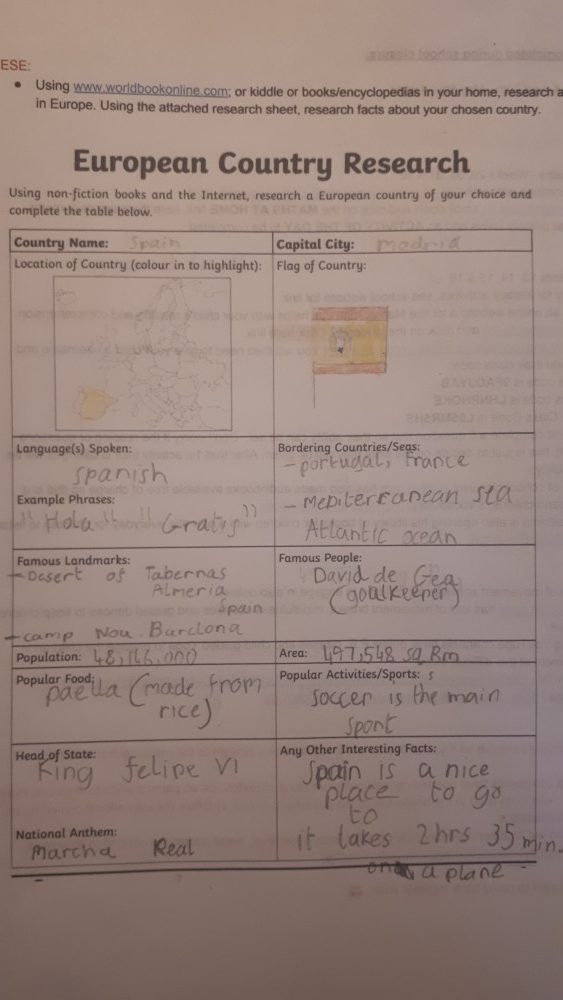 ESE:
• Using www.worldbookonline.com; or kiddle or books/encyclopedias in your home, research a
in Europe. Using the attached research sheet, research facts about your chosen country.
European Country Research
Using non-fiction books and the Internet, research a European country of your choice and
complete the table below.
Country Name: Spain
Capital City: madrid
Location of Country (colour in to highlight):
Flag of Country:
Language(s) Spoken:
Spanish
Example Phrases:
"Hola" "Gratis"
Bordering Countries/Seas:
- portugal, France
- Mediterranean sea
Atlantic ocean
Famous Landmarks:
- Desert of Tabernas
Almeria
Spain
- camp Nou. Barclona
Famous People:
David de Gea
(goalkeeper)
Population: 48,146,000
Area: 497,548 sq Km
Popular Food:
paella (made from
rice)
Popular Activities/Sports: s
soccer is the main
sport
Head of State:
King felipe VI
National Anthem:
Marcha Real
Any Other Interesting Facts:
Spain is a nice
place to go
to
it takes 2hrs 35 min.
on a plane